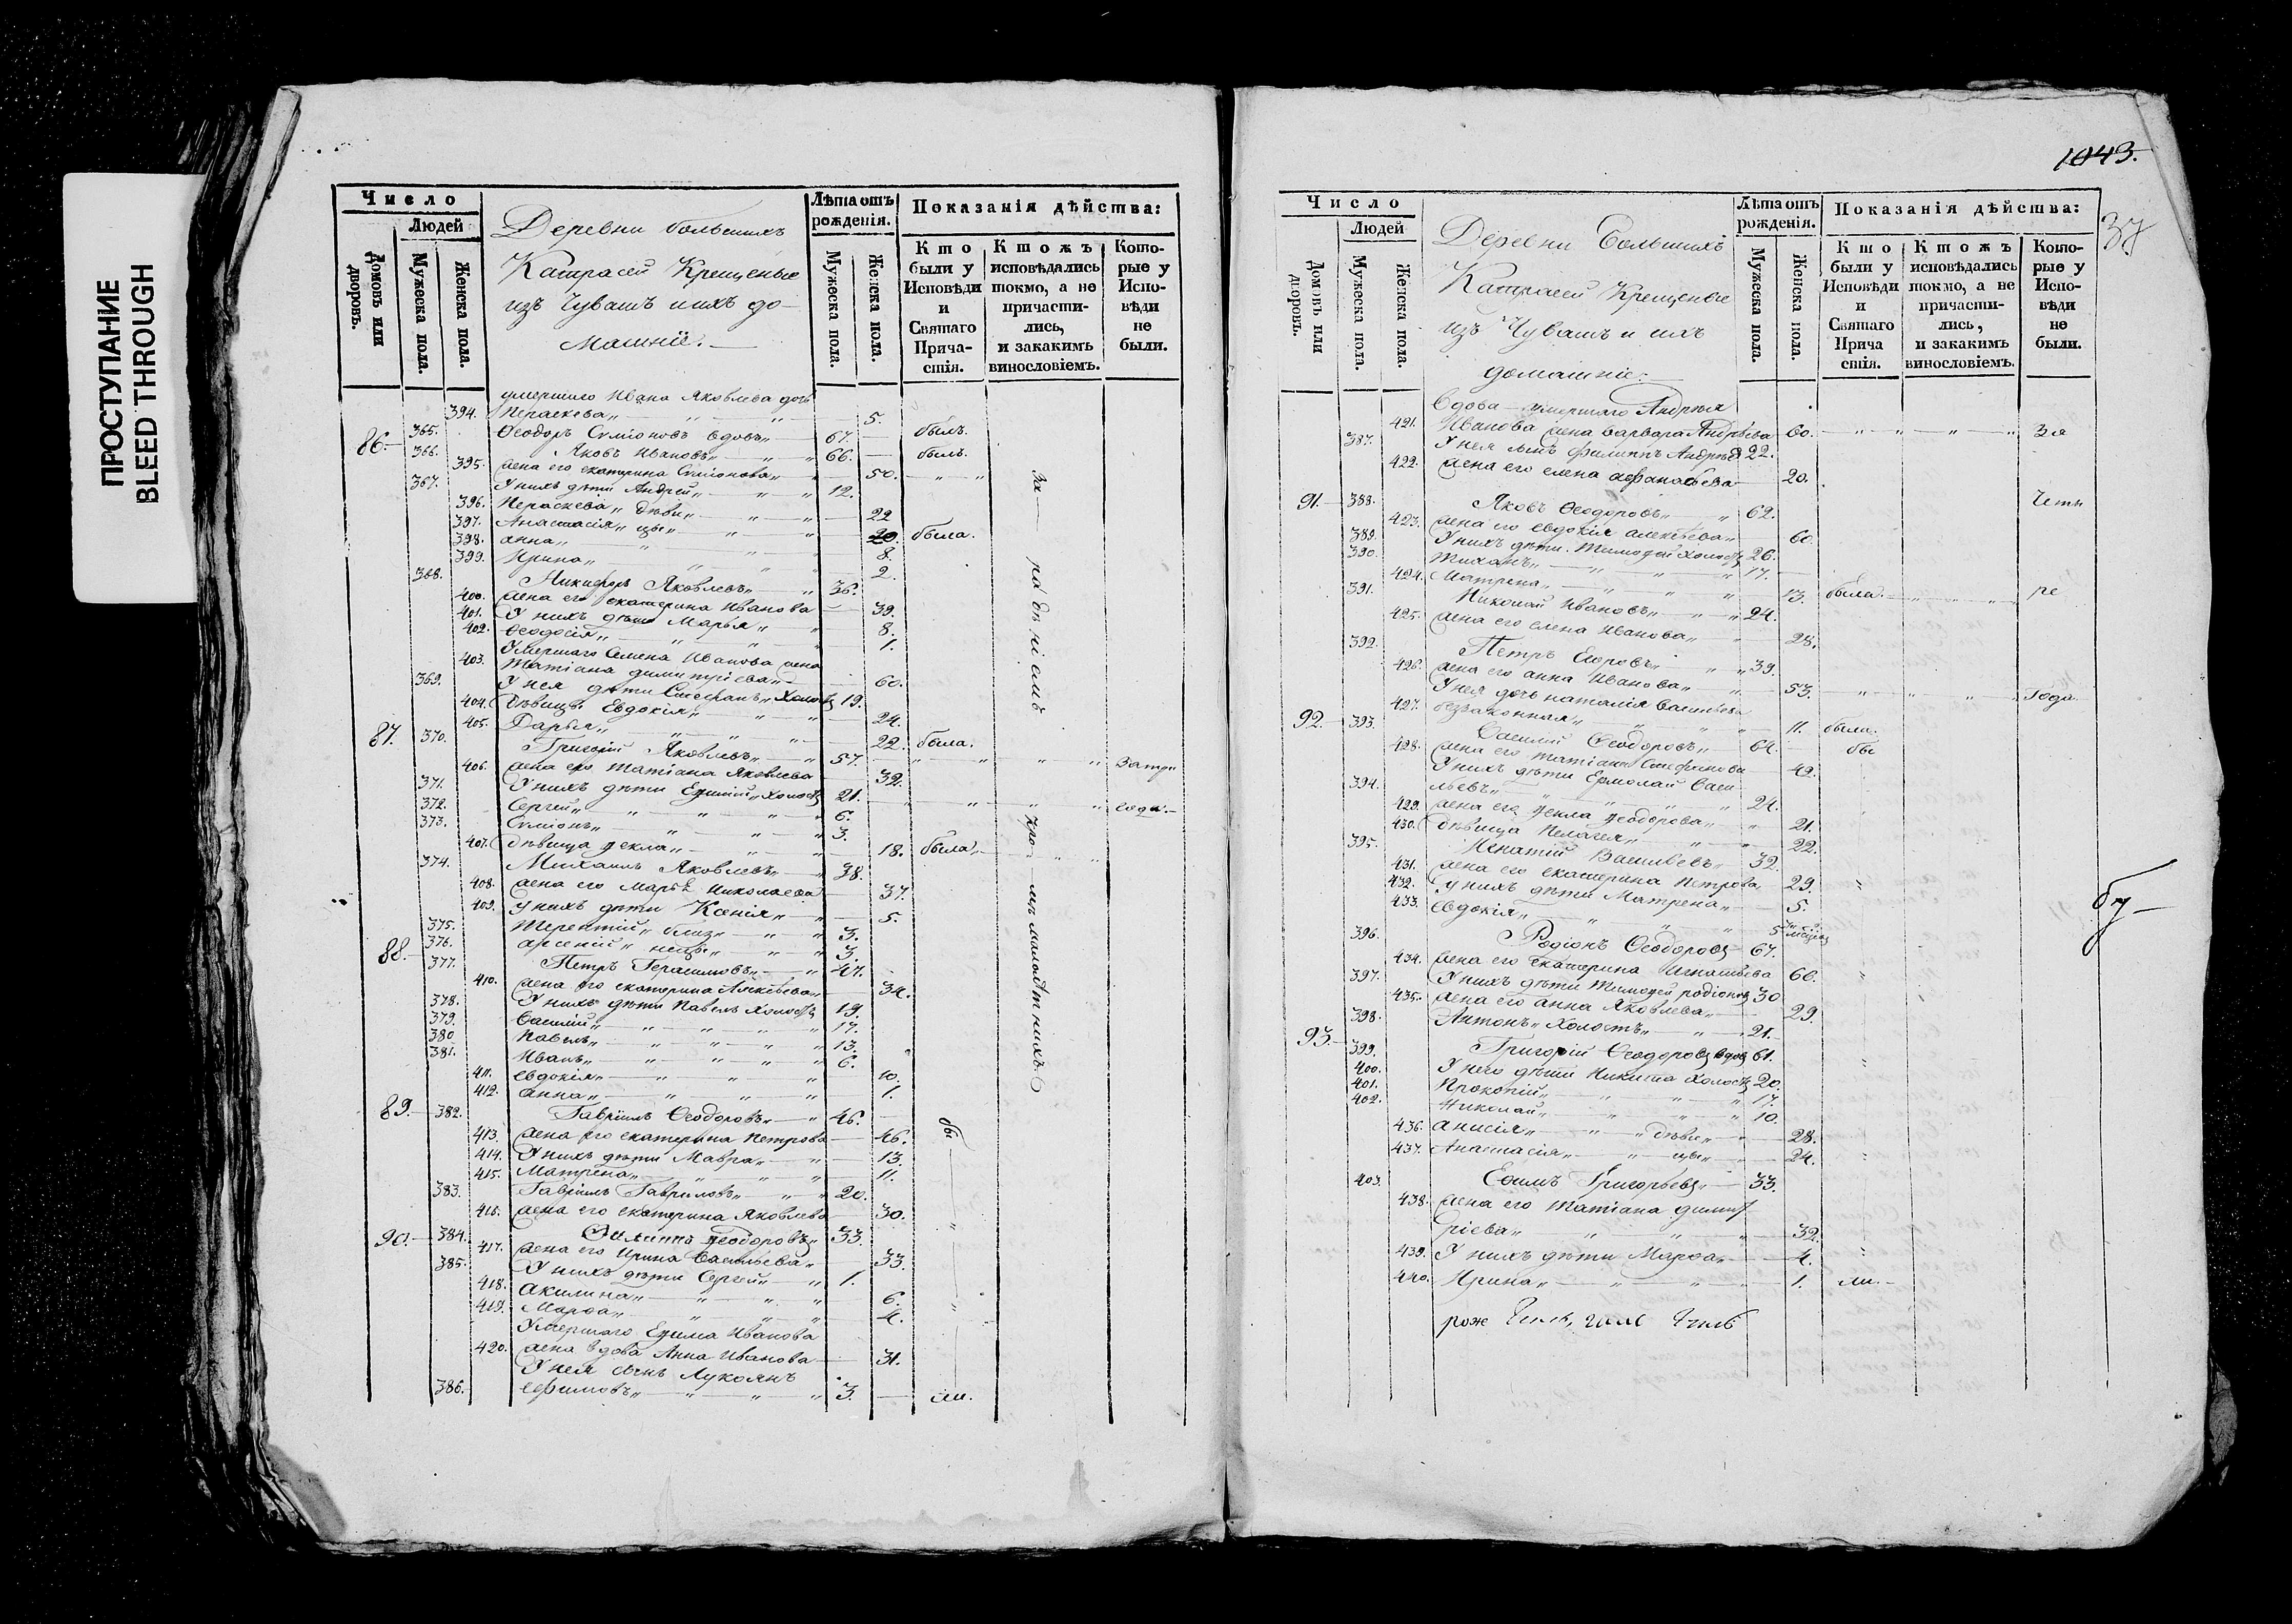 ПРОСТУПАНИЕ
BLEED THROUGH
Число
Людей
Домовъ или дворовъ.
Мужеска пола.
Женска пола.
Деревни большихъ
Катрасей Крещеные
изъ Чувашъ и ихъ до-
машніе.
Лѣта отъ рожденія.
Мужеска пола.
Женска пола.
Показанія дѣйства:
Кто были у Исповѣди и Святаго Причастія.
Ктожъ исповѣдались токмо, а не причастились, и закакимъ винословіемъ.
Которые у Исповѣди не были.
умершаго Ивана Яковлева дочь
394. Параскева 5.
86. 365. Ѳеодоръ Симіоновъ вдовъ 67. былъ.
366. Яковъ Ивановъ 66. былъ.
395. жена его екатерина Симіонова 50.
367. У нихъ дѣти Андрей 12.
396. Параскева дѣви 22
397. Анастасія цы 20. была.
398. анна 8.
399. Ирина 2.
368. Никифоръ Яковлевъ 36.
400. жена его екатерина Иванова 39.
401. У нихъ дѣти Марья 8.
402. Ѳеодосія 1.
Умершаго Семена Иванова жена
403. Татіана димитріева 60.
369. У нея дѣти Стефанъ Холостъ 19.
404. дѣвицы Евдокія 24.
405. Дарья 22. была.
87. 370. Григорій Яковлевъ 57.
406. жена его Татіана Яковлева 32.
371. У нихъ дѣти Евфимій Холостъ 21.
372. Сергей 6.
373. Симіонъ 3.
407. дѣвица Ѳекла 18. была
374. Михаилъ Яковлевъ 38.
408. жена его Марья Николаева 37.
409. У нихъ дѣти Ксенія 5.
375. Терентий близ 3.
376. арсеній нецы 3.
88. 377. Петръ Герасимовъ 47.
410. жена его екатерина Алексѣева 34.
378. У нихъ дѣти Павелъ Холостъ 19.
379. Василій 17.
380 Павелъ 13.
381. Иванъ 6.
411. евдокія 10.
412. анна 1.
89. 382. Гавріилъ Ѳеодоровъ 46.
413. жена его екатерина Петрова 46.
414. У нихъ дѣти Мавра 13.
415. Матрена 11.
383. Гавріилъ Гавриловъ 20.
416. жена его екатерина Яковлева 30.
90. 384. Филиппъ Ѳеодоровъ 33.
417. жена его Ирина Васильева 33.
385. У нихъ дѣти Сергей 1.
418. Акилина 6.
419. Марѳа 4.
Умершаго Ефима Иванова
420. жена вдова Анна Иванова 31.
У нея сынъ Лукоянъ
386. ефимовъ 3. ли.
1043.
37
Число
Людей
Домовъ или дворовъ.
Мужеска пола.
Женска пола.
Деревни Большихъ
Катрасей Крещеные
изъ Чувашъ и ихъ
домашніе.
Лѣта отъ рожденія.
Мужеска пола.
Женска пола.
Показанія дѣйства:
Кто были у Исповѣди и Святаго Прича стія.
Ктожъ исповѣдались токмо, а не причастились, и закакимъ винословіемъ.
Которые у Исповѣди не были.
Вдова умершаго Андрея
421. Иванова жена варвара Андрѣева 60. За
387. У нея сынъ филиппъ Андрѣевъ 22.
422. жена его елена афанасьева 20.
91. 388. Яковъ Ѳеодоровъ 62. Четы
423. жена его евдокія алексѣева 60.
389. У нихъ дѣти Тимоѳей холостъ 26.
390. Тиханъ 17.
424. Матрена 13. была. ре
391. Николай Ивановъ 24.
425. жена его елена Иванова 28.
392. Петръ Егоровъ 39.
426. жена его анна Иванова 53. Года
У нея дочь наталія васильева
427. беззаконная 11. была.
92. 393. Василій Ѳеодоровъ 64. бы
428. жена его Татіана Стефанова 49.
У нихъ дѣти Ермолай Васи
394. льевъ 24.
429. жена его Ѳекла Ѳеодорова 21.
430. дѣвица Пелагея 22.
395. Игнатій Васильевъ 32.
431. жена его екатерина Петрова 29.
432. у нихъ дѣти Матрена 5.
433. евдокія 5
396. Родіонъ Ѳеодоровъ 67.
434. жена его екатерина Игнатьева 66.
397. У нихъ дѣти Тимоѳей родіоновъ 30
435. жена его анна Яковлева 29.
398. Антонъ Холостъ 21.
93. 399. Григорій Ѳеодоровъ вдовъ 61.
400. У него дѣти Никита холостъ 20.
401. Прокопій 17.
402. Николай 10.
436. анисія дѣви 28.
437. Анастасія цы 24.
403. Ефимъ Григорьевъ 33.
438. жена его Татіана димит
ріева 32.
439. У нихъ дѣти Марѳа 4.
440. Ирина 1. ли.